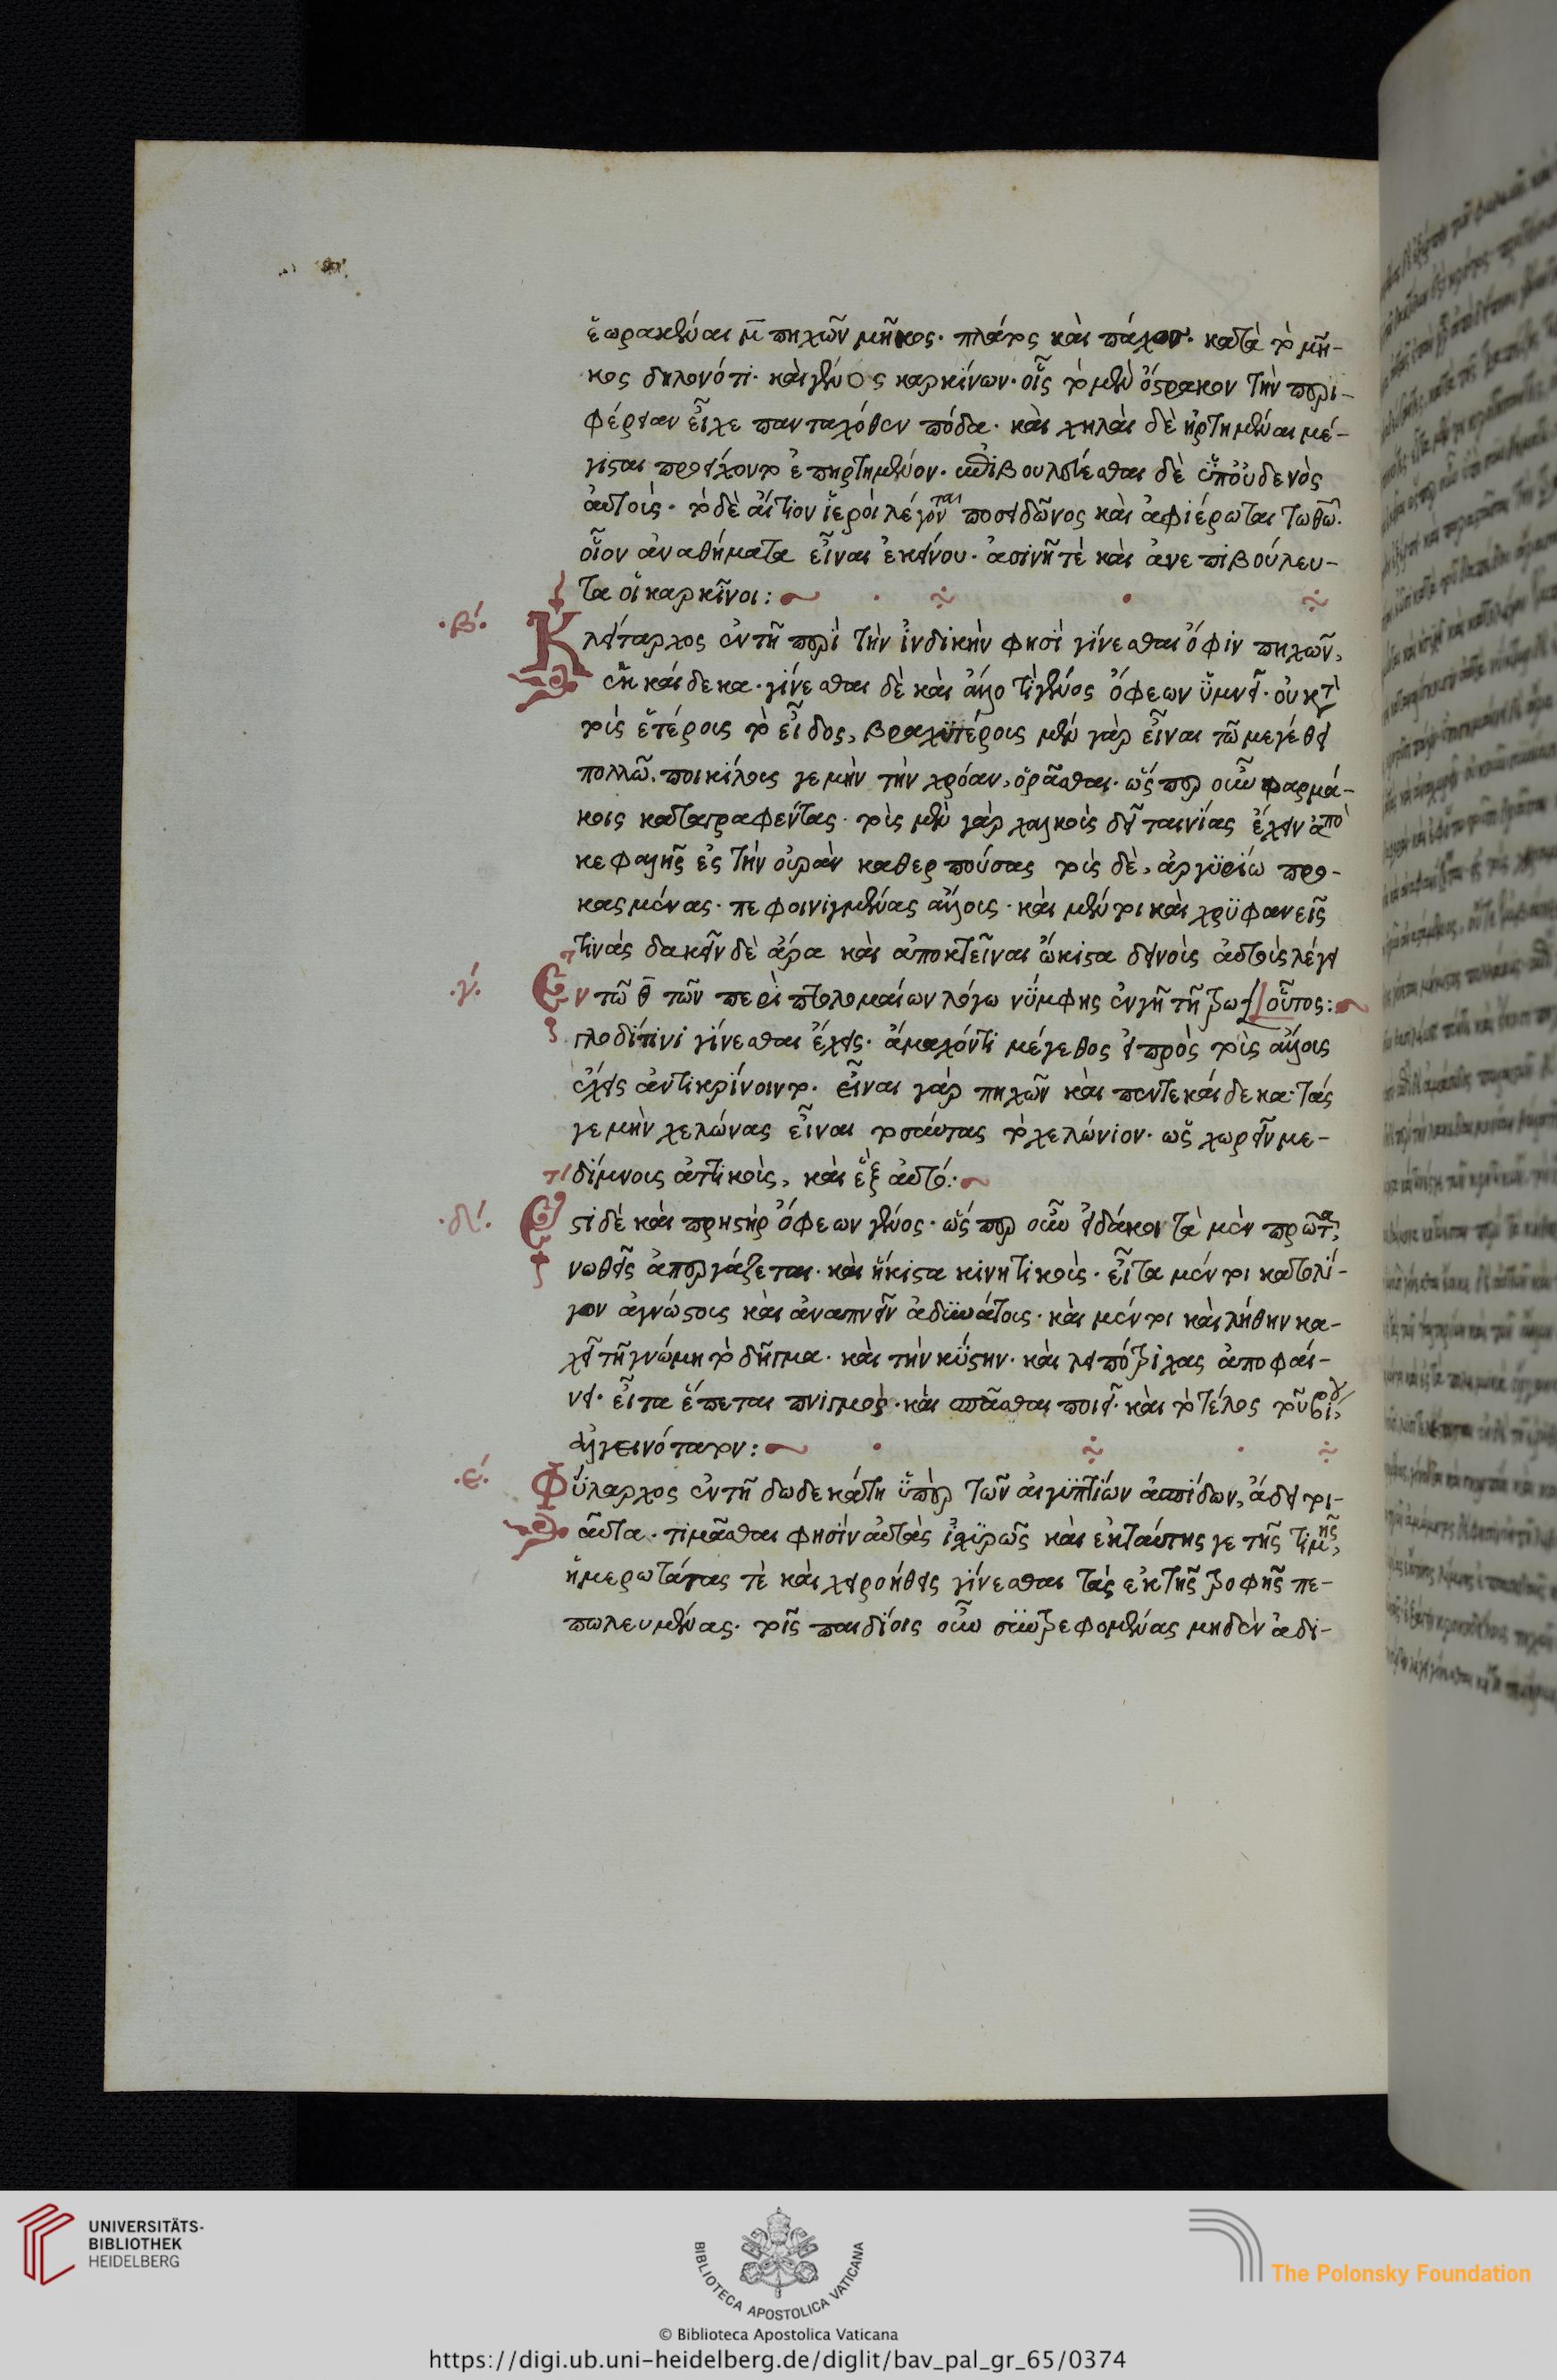 ἑωρακέναι μ̅ πηχῶν μῆκος· πλάτος καὶ πάχος· κατὰ τὸ μῆ-
κος δηλονότι· καὶ γένος καρκίνων· οἷς τὸ μὲν ὄστρακον τὴν περι-
φέρειαν εἶχε πανταχόθεν πόδα· καὶ χηλαὶ δὲ ἠρτημέναι μέ-
γισται προείχοντο ἐπηρτημένον· ἐπιβουλεύεσθαι δὲ ὑπ' οὐδενὸς
αὐτοῖς· τὸ δὲ αἴτιον ἱεροὶ λέγονται ποσειδῶνος καὶ ἀφιέρωται τῶ θεῶ·
οἷον ἀναθήματα εἶναι ἐκείνου· ἀσινῆ τὲ καὶ ἀνεπιβούλευ-
τα οἱ καρκῖνοι:
·β΄· Κλείταρχος ἐν τῆ περὶ τὴν ἰνδικὴν φησὶ γίνεσθαι ὄφιν πηχῶν,
ἑκκαίδεκα· γίνεσθαι δὲ καὶ ἄλλο τι γένος ὄφεων ὑμνεῖ· οὐ κατὰ
τοὺς ἑτέρους τὸ εἶδος, βραχυτέρους μὲν γὰρ εἶναι τῶ μεγέθει
πολλῶ, ποικίλους γε μὴν τὴν χρόαν, ὁρᾶσθαι· ὥσπερ οὖν φαρμά-
κοις καταγραφέντας· τοὺς μὲν γὰρ χαλκοῖς δεῖ ταινίας ἔχειν ἀπὸ
κεφαλῆς ἐς τὴν οὐρὰν καθερπούσας τοὺς δὲ, ἀργυρίω προ-
κασμένας· πεφοινιγμένας ἄλλους· καὶ μέντοι καὶ χρυφανεῖς
τινὰς δακεῖν δὲ ἄρα καὶ ἀποκτεῖναι ὤκιστα δεινοὺς αὐτοὺς λέγει
οὗτος:
·γ΄· Ἐν τῶ θ̅ τῶν περὶ πτολομαίων λόγω νύμφης ἐν γῆ τῆ τρω
γλοδίτινι γίνεσθαι ἔχεις· ἄμαχόν τι μέγεθος εἰ πρὸς τοὺς ἄλλους
ἔχεις ἀντικρίνοιντο· εἶναι γὰρ πηχῶν καὶ πεντεκαίδεκα· τάς
γε μὴν χελώνας εἶναι τοσαύτας τὸ χελώνιον· ὡς χωρεῖν με-
δίμνους ἀττικοὺς, καὶ ἓξ αὐτό:
·δ΄· Ἔστι δὲ καὶ πρηστὴρ ὄφεων γένος· ὥσπερ οὖν εἰ δάκοι τὰ μὲν πρῶτα,
νωθεῖς ἀπεργάζεται· καὶ ἥκιστα κινητικοὺς· εἶτα μέντοι κατολί-
γον ἀγνώστους καὶ ἀναπνεῖν ἀδυνάτους· καὶ μέντοι καὶ λήθην κα-
χεῖ τῆ γνώμη τὸ δῆγμα· καὶ τὴν κύστην· καὶ λειπότριχας ἀποφαί-
νει· εἶτα ἕπεται πνιγμὸς· καὶ σπᾶσθαι ποιεῖ· καὶ τὸ τέλος τοῦ βίου,
ἀλγεινότατον:
·ε΄· Φύλαρχος ἐν τῆ δωδεκάτη ὑπὲρ τῶν αἰγυπτίων ἀσπίδων, ἄδει τοι-
αῦτα· τιμᾶσθαι φησὶν αὐτὰς ἰσχυρῶς καὶ ἐκ ταύτης γε τῆς τιμῆς,
ἡμερωτάτας τὲ καὶ χειροήθεις γίνεσθαι τὰς ἐκ τῆς τροφῆς πε-
πωλευμένας· τοῖς παιδίοις οὖν συντρεφομένας μηδὲν ἀδι-
UNIVERSITÄTS-
BIBLIOTHEK
HEIDELBERG
BIBLIOTECA APOSTOLICA VATICANA
The Polonsky Foundation
© Biblioteca Apostolica Vaticana
https://digi.ub.uni-heidelberg.de/diglit/bav_pal_gr_65/0374